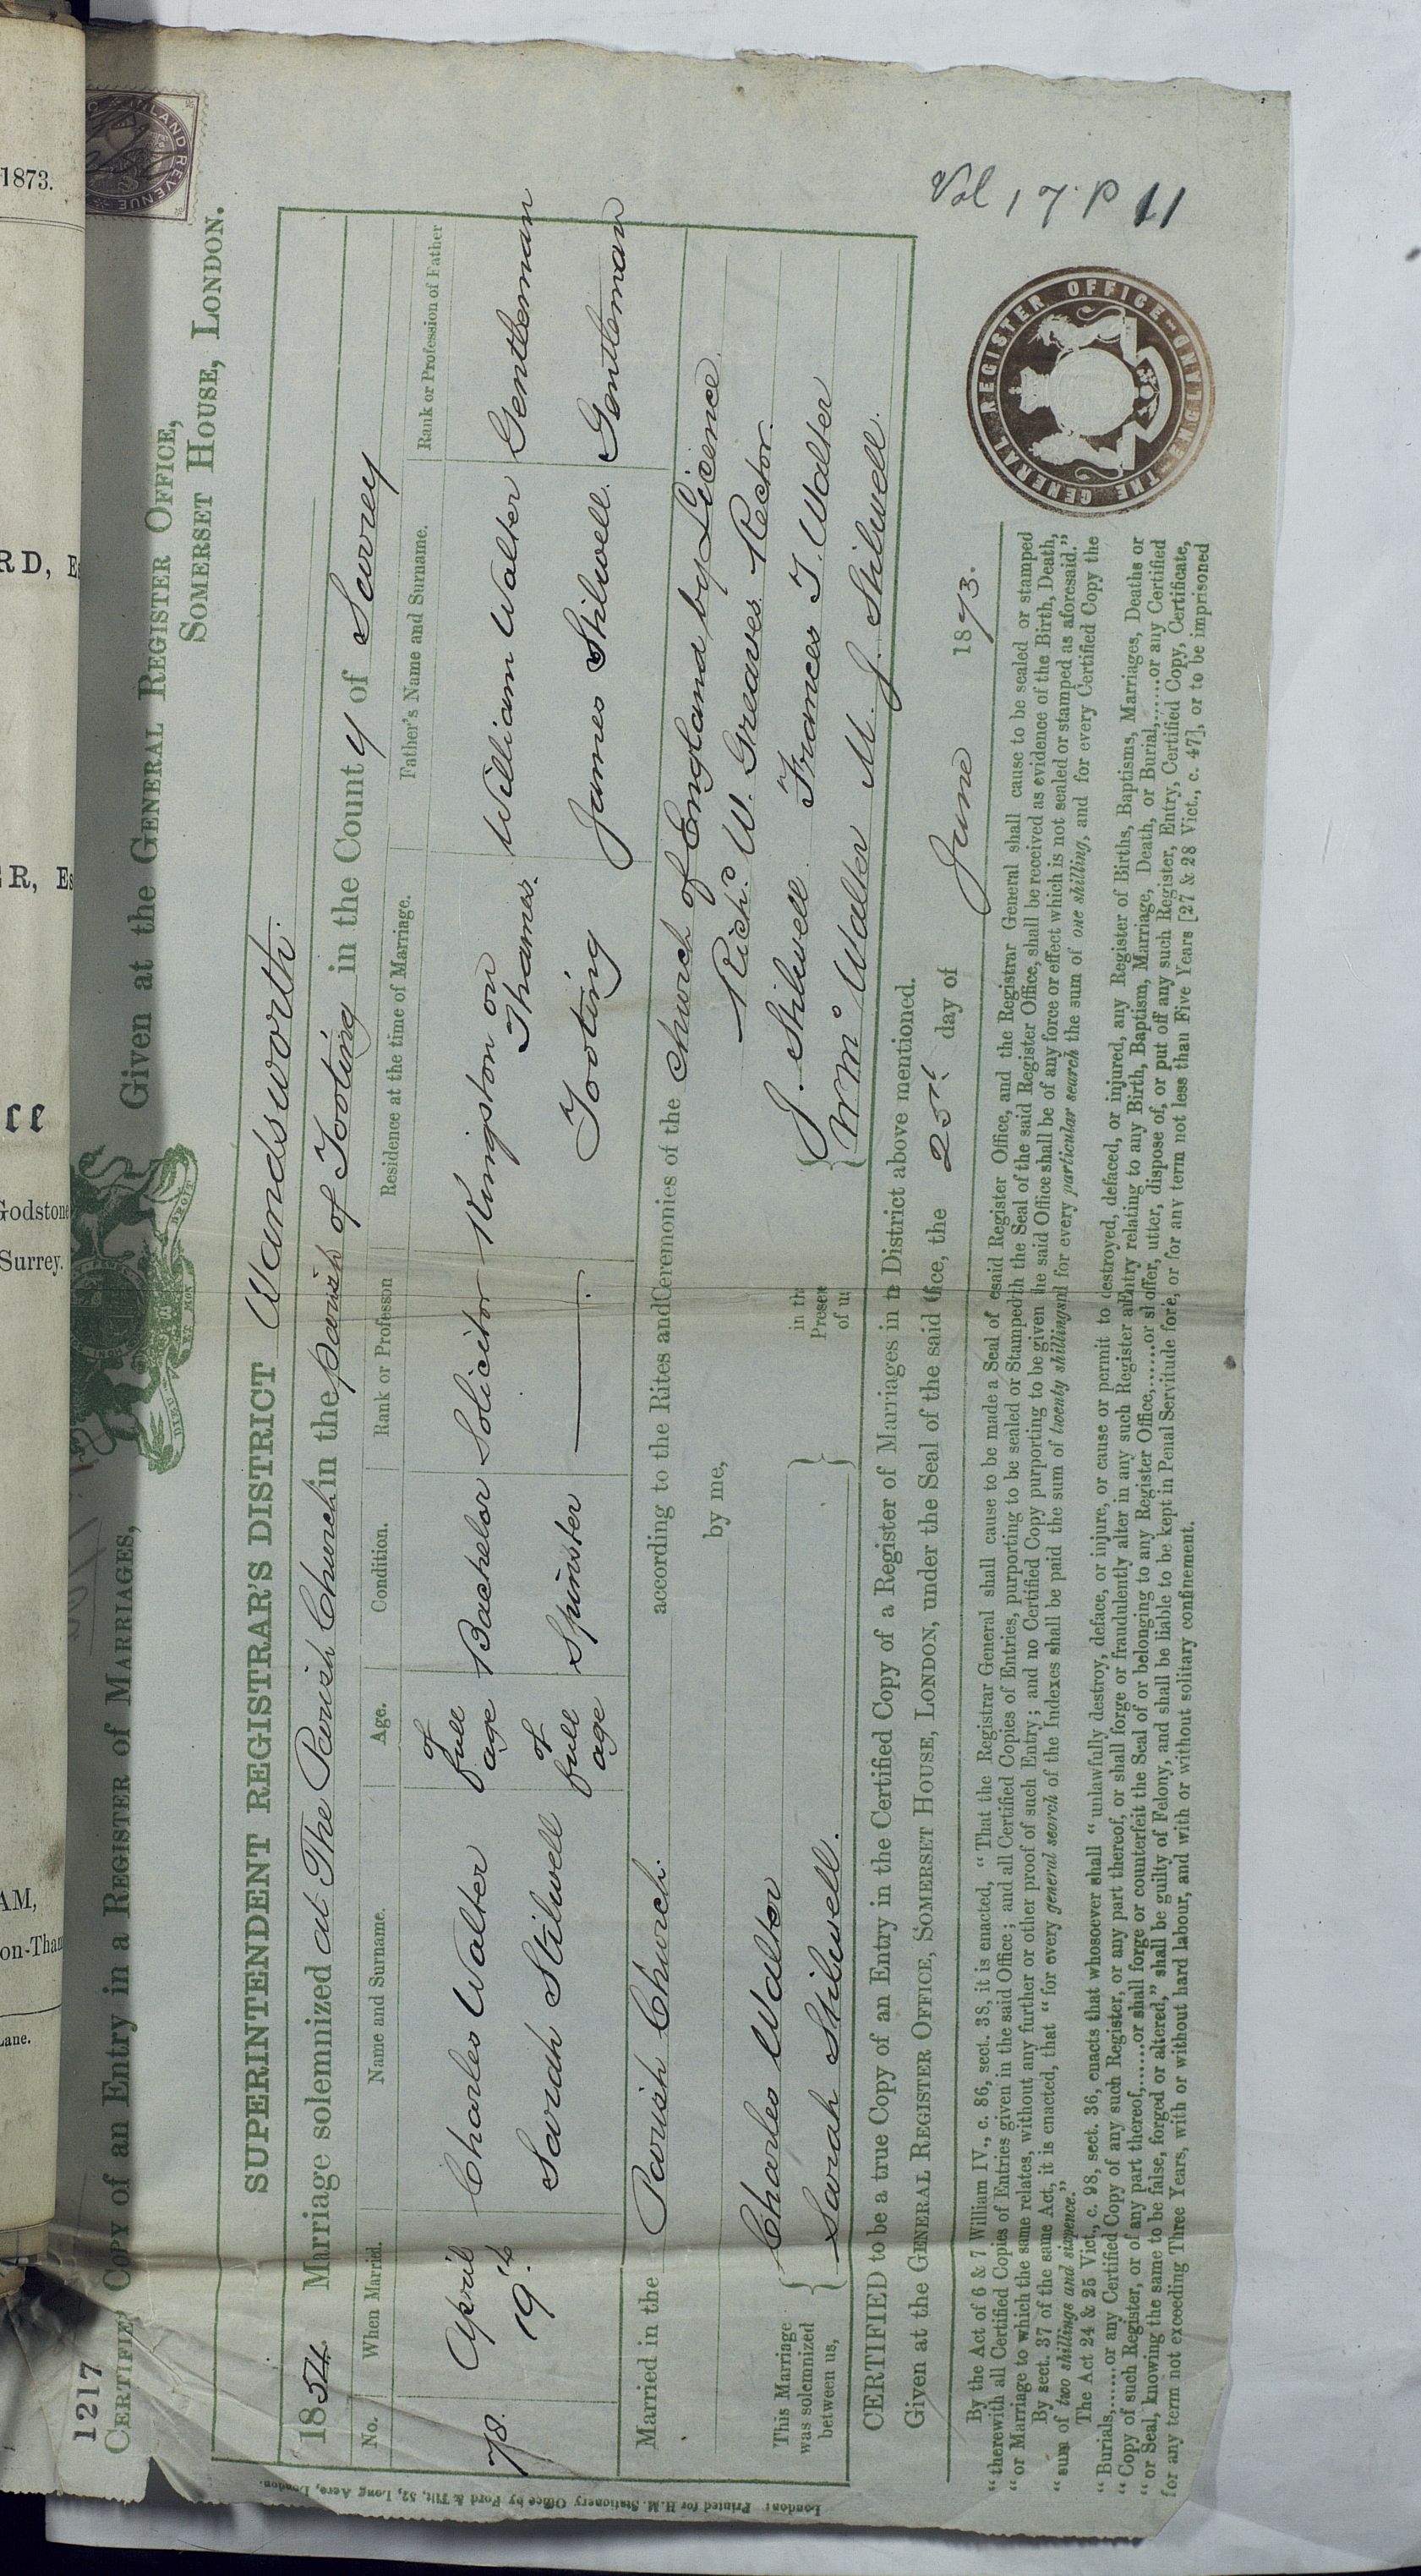 1873.
RD, E
ER, Es
ce
Godstone
Surrey.
AM,
on-Tham
Lane.
1217
CERTIFIE COPY of an Entry in a REGISTER of MARRIAGES,
Given at the GENERAL REGISTER OFFICE,
SOMERSET HOUSE, LONDON.
INLAND REVENUE
DIEU ET MON DROIT
SUPERINTENDENT REGISTRAR'S DISTRICT Wandsworth.
1854. Marriage solemnized at The Parish Church in the parish of Tooting in the County of Surrey
No. When Married. Name and Surname. Age. Condition. Rank or Professon Residence at the time of Marriage. Father's Name and Surname. Rank or Profession of Father
78. April 19th Charles Walter of full age Bachelor Solicitor Kingston on Thames. William Walter Gentleman
Sarah Stilwell of full age Spinster ——. Tooting James Stilwell. Gentleman
Married in the Parish Church. according to the Rites and Ceremonies of the Church of England by Licence.
by me, Richd. W. Greaves. Rector.
This Marriage was solemnized between us, { Charles Walter } in th Presen of us { J. Stilwell. Frances T. Walter
{ Sarah Stilwell. } { Wm. Walter M. J. Stilwell.
CERTIFIED to be a true Copy of an Entry in the Certified Copy of a Register of Marriages in e District above mentioned.
Given at the GENERAL REGISTER OFFICE, SOMERSET HOUSE, LONDON, under the Seal of the said fice, the 25th day of June 1873.
Vol 17. P 11
THE GENERAL REGISTER OFFICE ENGLAND
By the Act of 6 & 7 William IV., c. 86, sect. 38, it is enacted, "That the Registrar General shall cause to be made a Seal of esaid Register Office, and the Registrar General shall cause to be sealed or stamped
"therewith all Certified Copies of Entries given in the said Office; and all Certified Copies of Entries, purporting to be sealed or Stamped th the Seal of the said Register Office, shall be received as evidence of the Birth, Death,
"or Marriage to which the same relates, without any further or other proof of such Entry; and no Certified Copy purporting to be given he said Office shall be of any force or effect which is not sealed or stamped as aforesaid."
By sect. 37 of the same Act, it is enacted, that "for every general search of the Indexes shall be paid the sum of twenty shillings nl for every particular search the sum of one shilling, and for every Certified Copy the
"sum of two shillings and sixpence."
The Act 24 & 25 Vict., c. 98, sect. 36, enacts that whosoever shall "unlawfully destroy, deface, or injure, or cause or permit to destroyed, defaced, or injured, any Register of Births, Baptisms, Marriages, Deaths or
"Burials,......or any Certified Copy of any such Register, or any part thereof, or shall forge or fraudulently alter in any such Register a Entry relating to any Birth, Baptism, Marriage, Death, or Burial,......or any Certified
"Copy of such Register, or of any part thereof,......or shall forge or counterfeit the Seal of or belonging to any Register Office,......or sl offer, utter, dispose of, or put off any such Register, Entry, Certified Copy, Certificate,
"or Seal, knowing the same to be false, forged or altered," shall be guilty of Felony, and shall be liable to be kept in Penal Servitude fore, or for any term not less than Five Years [27 & 28 Vict., c. 47], or to be imprisoned
for any term not exceeding Three Years, with or without hard labour, and with or without solitary confinement.
London: Printed for H.M. Stationery Office by Ford & Tilt, 52, Long Acre, London.